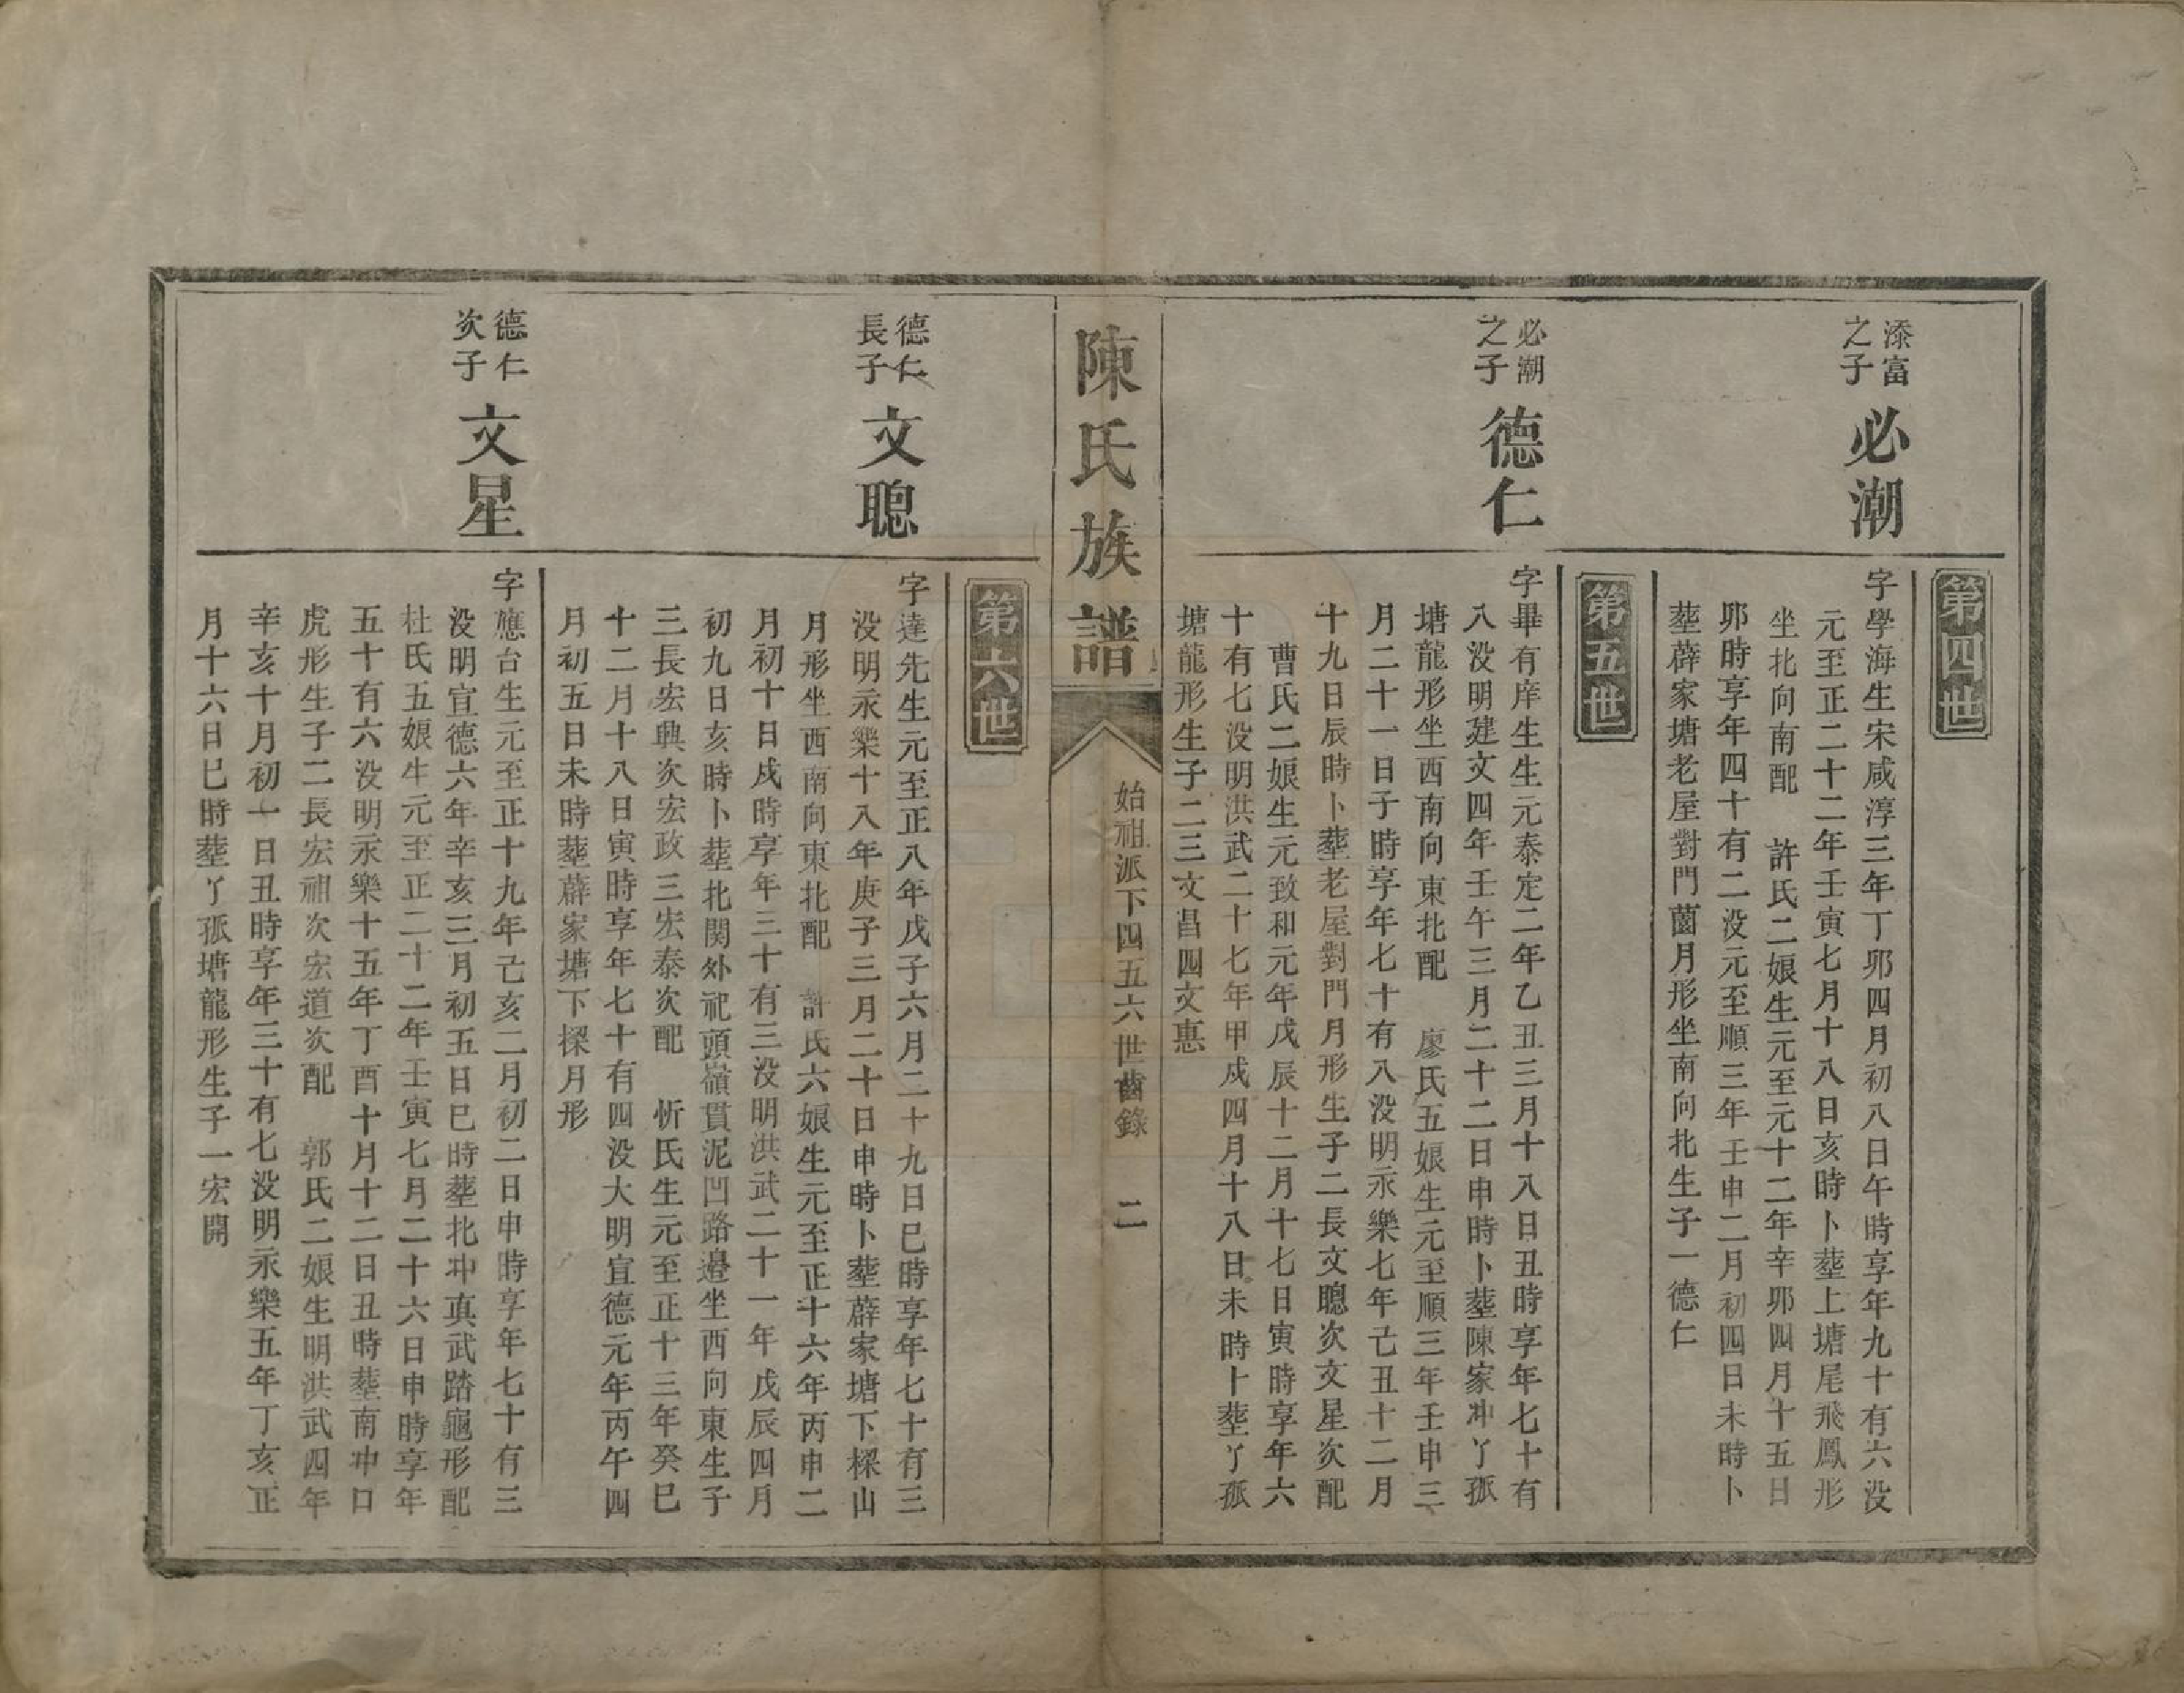 第四世
添富
之子
必潮
字學海生宋咸淳三年丁卯四月初八日午時享年九十有六没
元至正二十二年壬寅七月十八日亥時卜塟上塘尾飛鳳形
坐北向南配 許氏二娘生元至元十二年辛卯四月十五日
卯時享年四十有二没元至順三年壬申二月初四日未時卜
塟薜家塘老屋對門菌月形坐南向北生子一德仁
第五世
必潮
之子
德仁
字畢有庠生生元泰定二年乙丑三月十八日丑時享年七十有
八没明建文四年壬午三月二十二日申時卜塟陳家冲丫孤
塘龍形坐西南向東北配 廖氏五娘生元至順三年壬申三
月二十一日子時享年七十有八没明永樂七年己丑十二月
十九日辰時卜塟老屋對門月形生子二長文聰次文星次配
曹氏二娘生元致和元年戊辰十二月十七日寅時享年六
十有七没明洪武二十七年甲戌四月十八日未時卜塟丫孤
塘龍形生子二三文昌四文惠
陳氏族譜
始祖派下四五六世齒錄 二
第六世
德仁
長子
文聰
字達先生元至正八年戊子六月二十九日巳時享年七十有三
没明永樂十八年庚子三月二十日申時卜塟薜家塘下樑山
月形坐西南向東北配 許氏六娘生元至正十六年丙申二
月初十日戌時享年三十有三没明洪武二十一年戊辰四月
初九日亥時卜塟北関外祀頭嶺貫泥凹路邉坐西向東生子
三長宏興次宏政三宏泰次配 忻氏生元至正十三年癸巳
十二月十八日寅時享年七十有四没大明宣德元年丙午四
月初五日未時塟薜家塘下樑月形
德仁
次子
文星
字應台生元至正十九年己亥二月初二日申時享年七十有三
没明宣德六年辛亥三月初五日巳時塟北冲真武踏龜形配
杜氏五娘生元至正二十二年壬寅七月二十六日申時享年
五十有六没明永樂十五年丁酉十月十二日丑時塟南冲口
虎形生子二長宏祖次宏道次配 郭氏二娘生明洪武四年
辛亥十月初一日丑時享年三十有七没明永樂五年丁亥正
月十六日巳時塟丫孤塘龍形生子一宏開